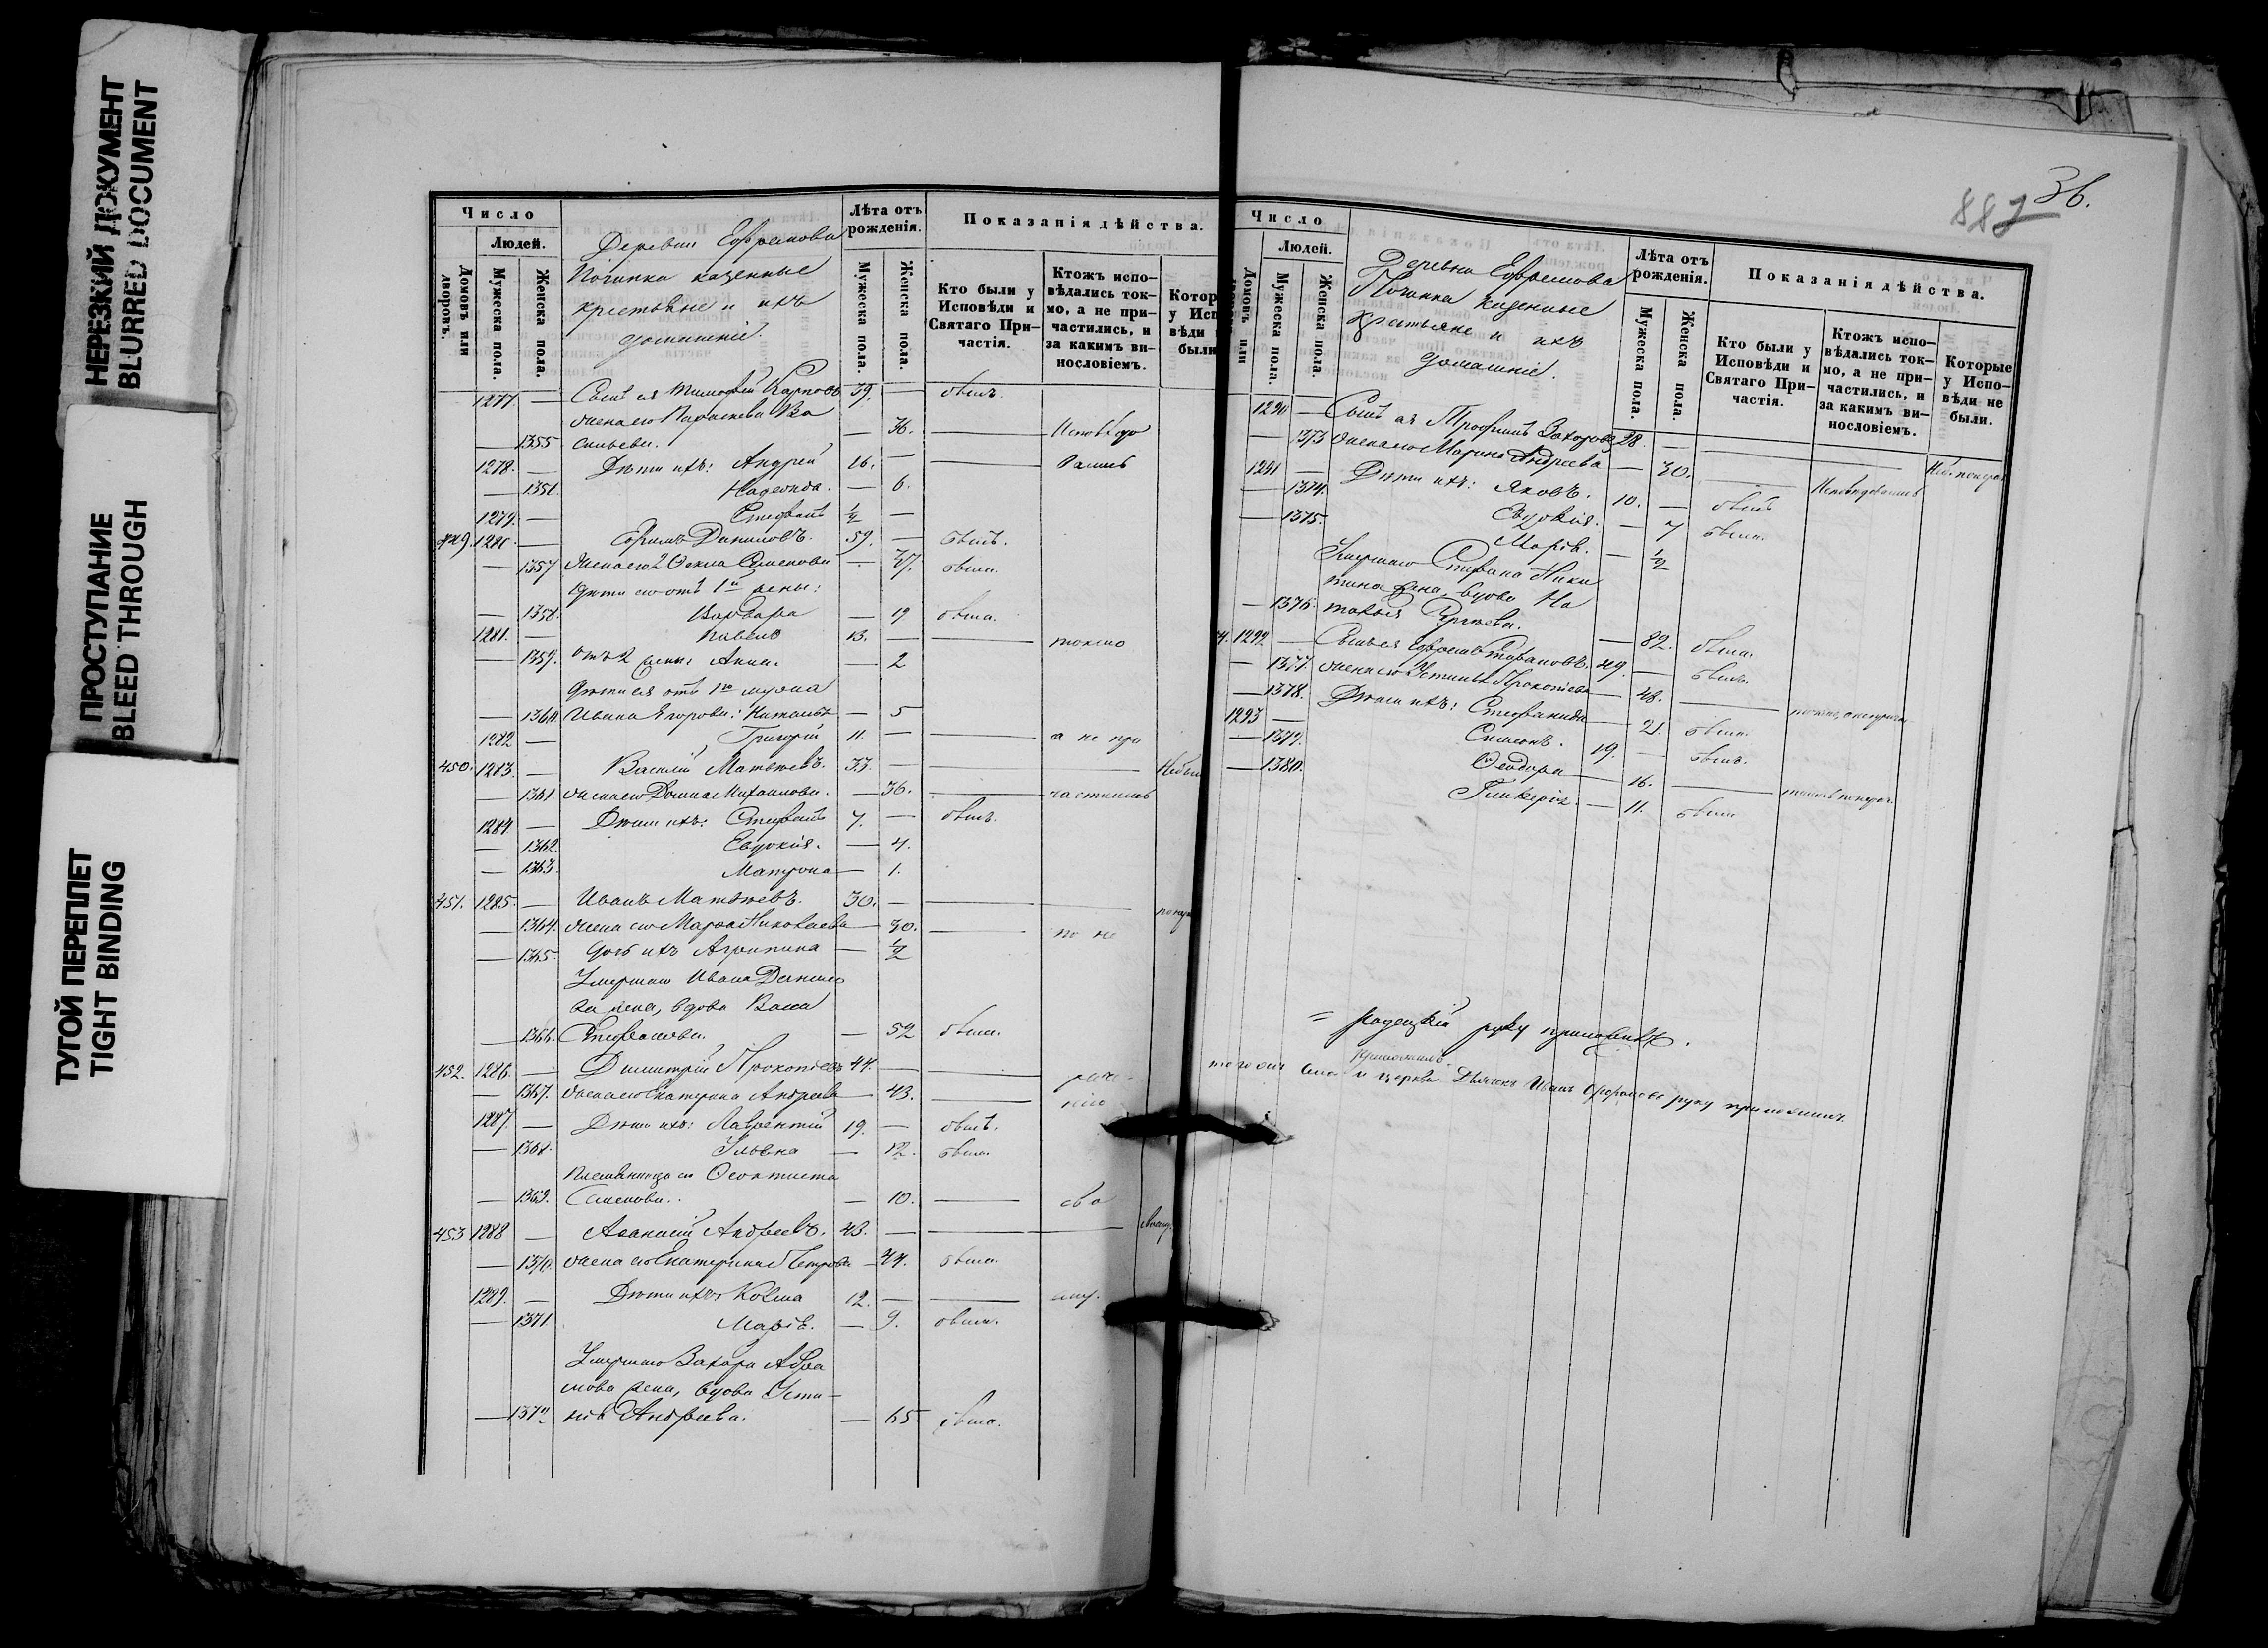 НЕРЕЗКИЙ ДОКУМЕНТ
BLURRED DOCUMENT
ПРОСТУПАНИЕ
BLEED THROUGH
ТУГОЙ ПЕРЕПЛЕТ
TIGHT BINDING
Число
Людей.
Домовъ или дворовъ.
Мужеска пола.
Женска пола.
Деревни Ефремова
Починка казенные
крестьяне и ихъ
домашніе.
Лѣта отъ рожденія.
Мужеска пола.
Женска пола.
Показанія дѣйства.
Кто были у Исповѣди и Святаго Причастія.
Ктожъ исповѣдались токмо, а не причастились, и за какимъ винословіемъ.
Котор
у Исп
вѣди
были
1277. — Сынъ ея Тимофей Карповъ 39. — былъ.
жена его Параскева Ва
— 1355 сильева. — 36. — Исповѣдо
1278. — Дѣти ихъ: Андрей 16. — — вались
— 1356. Надежда. — 6.
1279. — Стефанъ ½ —
449. 1280. — Даниловъ. 59. — былъ.
— 1357 жена его 2 Фекла Семенова — 37. была.
дѣти его отъ 1й жены:
— 1358. Варвара — 19 была.
1281. — Павелъ 13. — — токмо
— 1359. отъ 2 жены Анна. — 2
дѣти ея отъ 1го мужа
— 1360. Ивана Егорова: Наталья — 5
1282 — Григорій 11. — — а не при
450. 1283. — Василій Матвѣевъ. 33. — —
— 1361 жена его Домна Михаилова. — 36. — частились
1284 — Дѣти ихъ: Стефанъ 7. — былъ.
— 1362. Евдокія. — 4.
— 1363. Матрона — 1.
451. 1285. — Иванъ Матвѣевъ. 30. — —
— 1364. жена его Марѳа Николаева — 30. — по не
— 1365. дочь ихъ Агрипина — ½
Умершаго Ивана Данило
ва жена, вдова Васса
— 1366. Стефанова. — 52 была.
452. 1286. — Димитрій Прокопіевъ 44. — — раче-
— 1367. жена его Екатерина Андреева — 43. — нію
1287. — Дѣти ихъ: Лаврентій 19. — былъ.
— 1368. Ульяна — 12. была.
племянница его Ѳеоктиста
— 1369. Семенова. — 10. — сво
453 1288 — Аѳанасій Андреевъ. 43. — —
— 1370. жена его Екатерина Петрова — 44. была.
1289. — Дѣти ихъ: Козма 12. — — ему.
— 1371. Марія. — 9. была.
Умершаго Захара Абра
мова жена, вдова Усти-
— 1372 нія Андреева. — 65 была.
887
36.
Число
Людей.
Домовъ или
Мужеска пола.
Женска пола.
Деревни Ефремова
Починка казенные
крестьяне и ихъ
домашніе.
Лѣта отъ рожденія.
Мужеска пола.
Женска пола.
Показанія дѣйства.
Кто были у Исповѣди и Святаго Причастія.
Ктожъ исповѣдались токмо, а не причастились, и за какимъ винословіемъ.
Которые у Исповѣди не были.
1290 — Сынъ ея Трофимъ Захаровъ 28. — —
— 1373 жена его Марина Андреева — 30. — Исповѣдовались
1291 — Дѣти ихъ: Яковъ. 10. — былъ
— 1374. Евдокія. — 7 была.
— 1375. Марія. — ½
Умершаго Стефана Ники
тина жена, вдова На
— 1376. талья Сергѣева. — 82. была.
4. 1292 — Сынъ ея Ефремъ Стефановъ. 49. — былъ.
— 1377. жена его Устинья Прокопіева — 48. —
— 1378. Дѣти ихъ: Стефанида — 21. была.
1293 — Симеонъ. 19. — былъ.
— 1379. Ѳеодора — 16. —
— 1380. Гликерія. — 11. была
руку приложилъ.
тогожъ села и церкви Дьячекъ Иванъ руку приложилъ.